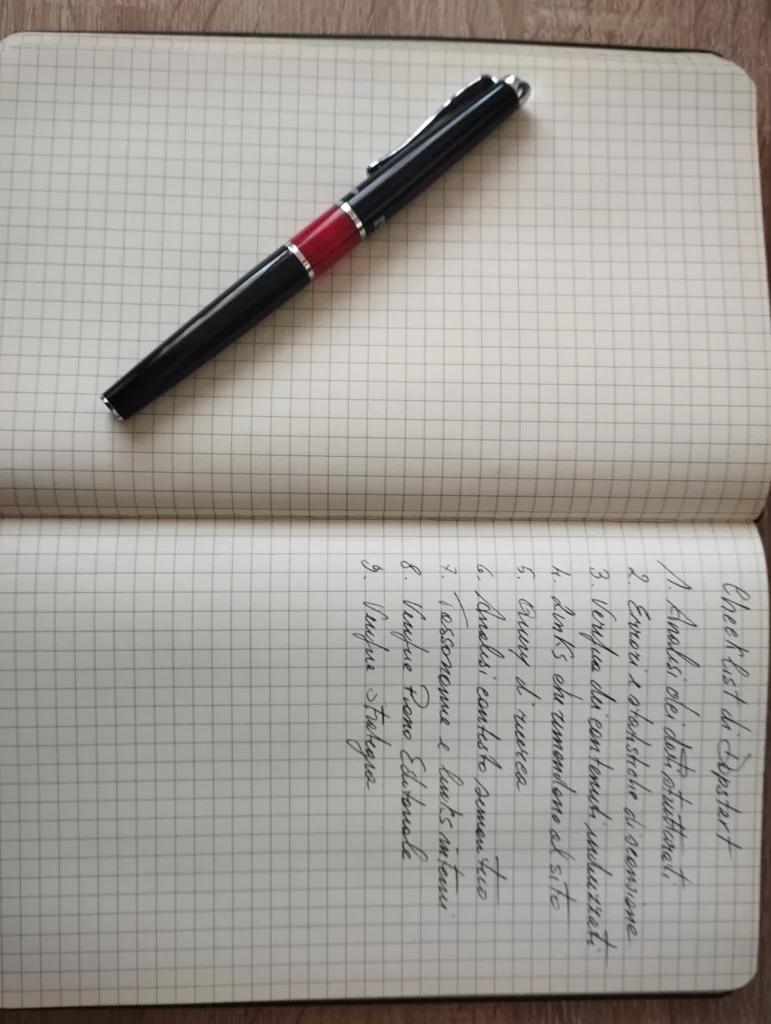 Checklist di Dopstart
1. Analisi dei dati strutturati
2. Errori e statistiche di scansione
3. Verifica dei contenuti indicizzati
4. Links che rimandono al sito
5. Query di ricerca
6. Analisi contesto semantico
7. Tassonomie e links interni
8. Verifica Piano Editoriale
9. Verifica strategia